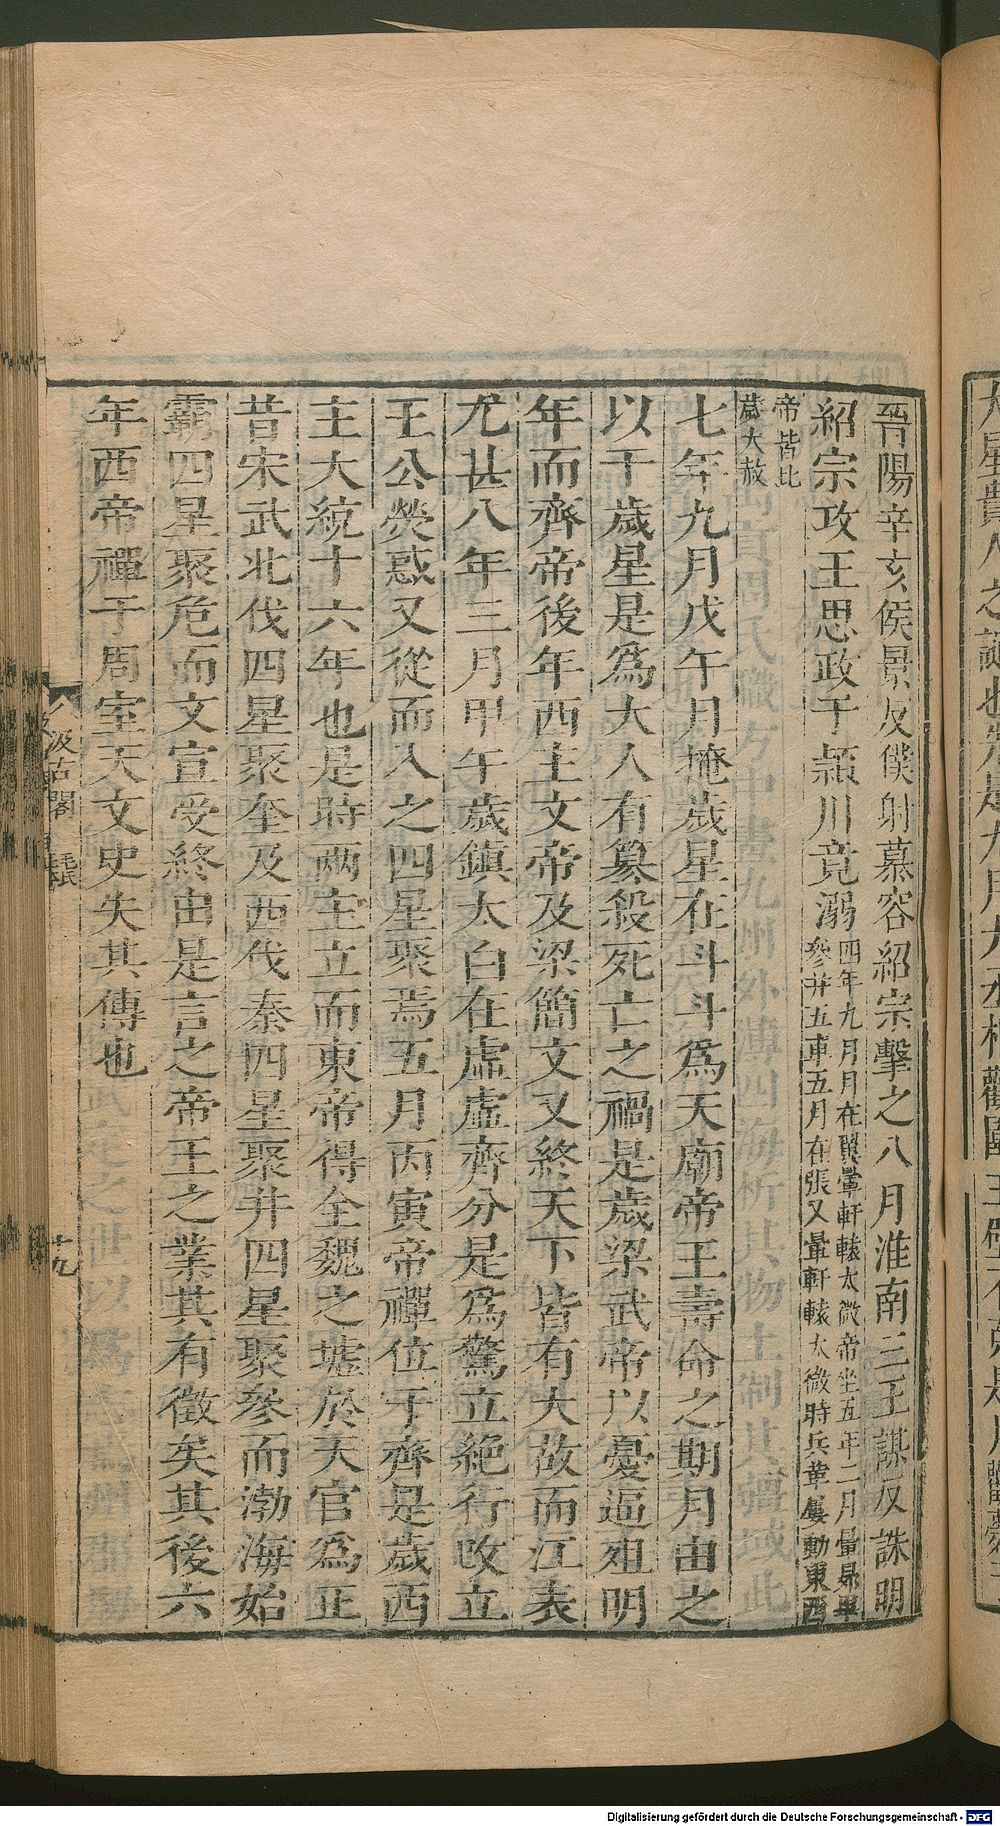 晉陽辛亥侯景反僕射慕容紹宗擊之八月淮南三王謀反誅明
紹宗攻王思政于頴川竟溺四年九月月在翼暈軒轅太微帝坐五年二月暈昴畢
參井五車五月在張又暈軒轅太微時兵革屢動東西
帝皆比
歲大赦
七年九月戊午月掩歲星在斗斗爲天廟帝王壽命之期月由之
以干歲星是爲大人有篡殺死亡之禍是歲梁武帝以憂逼殂明
年而齊帝後年西主文帝及梁簡文又終天下皆有大故而江表
尤甚八年三月甲午歲鎮太白在虛虛齊分是爲驚立絕行改立
王公熒惑又從而入之四星聚焉五月丙寅帝禪位于齊是歲西
主大統十六年也是時兩主立而東帝得全魏之墟於天官爲正
昔宋武北伐四星聚奎及西伐秦四星聚井四星聚參而渤海始
霸四星聚危而文宣受終由是言之帝王之業其有徵矣其後六
年西帝禪于周室天文史失其傳也
汲古閣
毛氏
十九
Digitalisierung gefördert durch die Deutsche Forschungsgemeinschaft - DFG